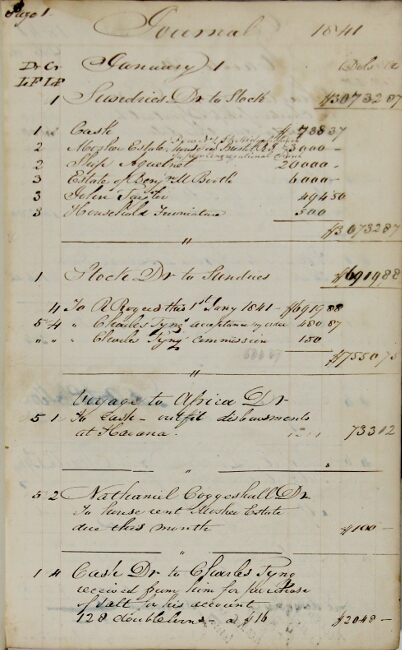 Page 1.
Journal 1841
Dr Cr January 1 Dols
LF LF
1 Sundries Dr to Stock $3073287
1 Cash $73837
2 Mosher Estate 3000-
2 Ship Agushnet 20000-
3 Estate of Benj M Booth 6000-
3 John Taylor 49450
3 Household Furniture 500
$3073287
"
1 Stock Dr to Sundries $691988
4 To this 1st Jany 1841- $691988
5 4 " Charles Tyng acceptance 480.87
" " " Charles Tyng Commission 150
$755075
"
Voyage to Africa Dr
5 1 To Cash - outfit disbursments
at Havana. 73312
"
5 2 Nathaniel Coggeshall Dr
To house rent Mosher Estate
due this month $100-
"
1 4 Cash Dr to Charles Tyng
received from him for purchase
of salt for his account
128 doubloons - a $16 $2048-